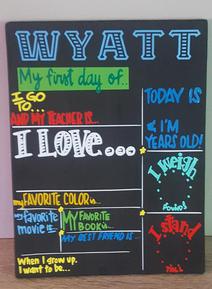 WYATT
My first day of..
I GO TO...
TODAY IS
AND MY TEACHER IS...
& I'M
YEARS OLD!
I LOVE...
I weigh
Pounds!
my FAVORITE COLOR is...
my favorite movie is...
MY FAVORITE BOOK is...
MY BEST FRIEND IS...
I stand
When I grow up,
I want to be...